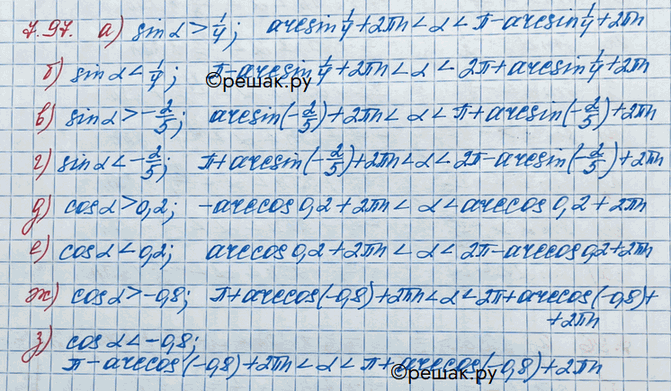 7.97. а) sinα > 1/4; arcsin 1/4 + 2πn < α < π - arcsin 1/4 + 2πn
б) sinα < 1/4; π - arcsin 1/4 + 2πn < α < 2π + arcsin 1/4 + 2πn
©решак.ру
в) sinα > -2/5; arcsin(-2/5) + 2πn < α < π + arcsin(-2/5) + 2πn
г) sinα < -2/5; π + arcsin(-2/5) + 2πn < α < 2π - arcsin(-2/5) + 2πn
д) cosα > 0,2; -arccos 0,2 + 2πn < α < arccos 0,2 + 2πn
е) cosα < 0,2; arccos 0,2 + 2πn < α < 2π - arccos 0,2 + 2πn
ж) cosα > -0,8; π + arccos(-0,8) + 2πn < α < 2π + arccos(-0,8) +
+ 2πn
з) cosα < -0,8;
π - arccos(-0,8) + 2πn < α < π + arccos(-0,8) + 2πn
©решак.ру